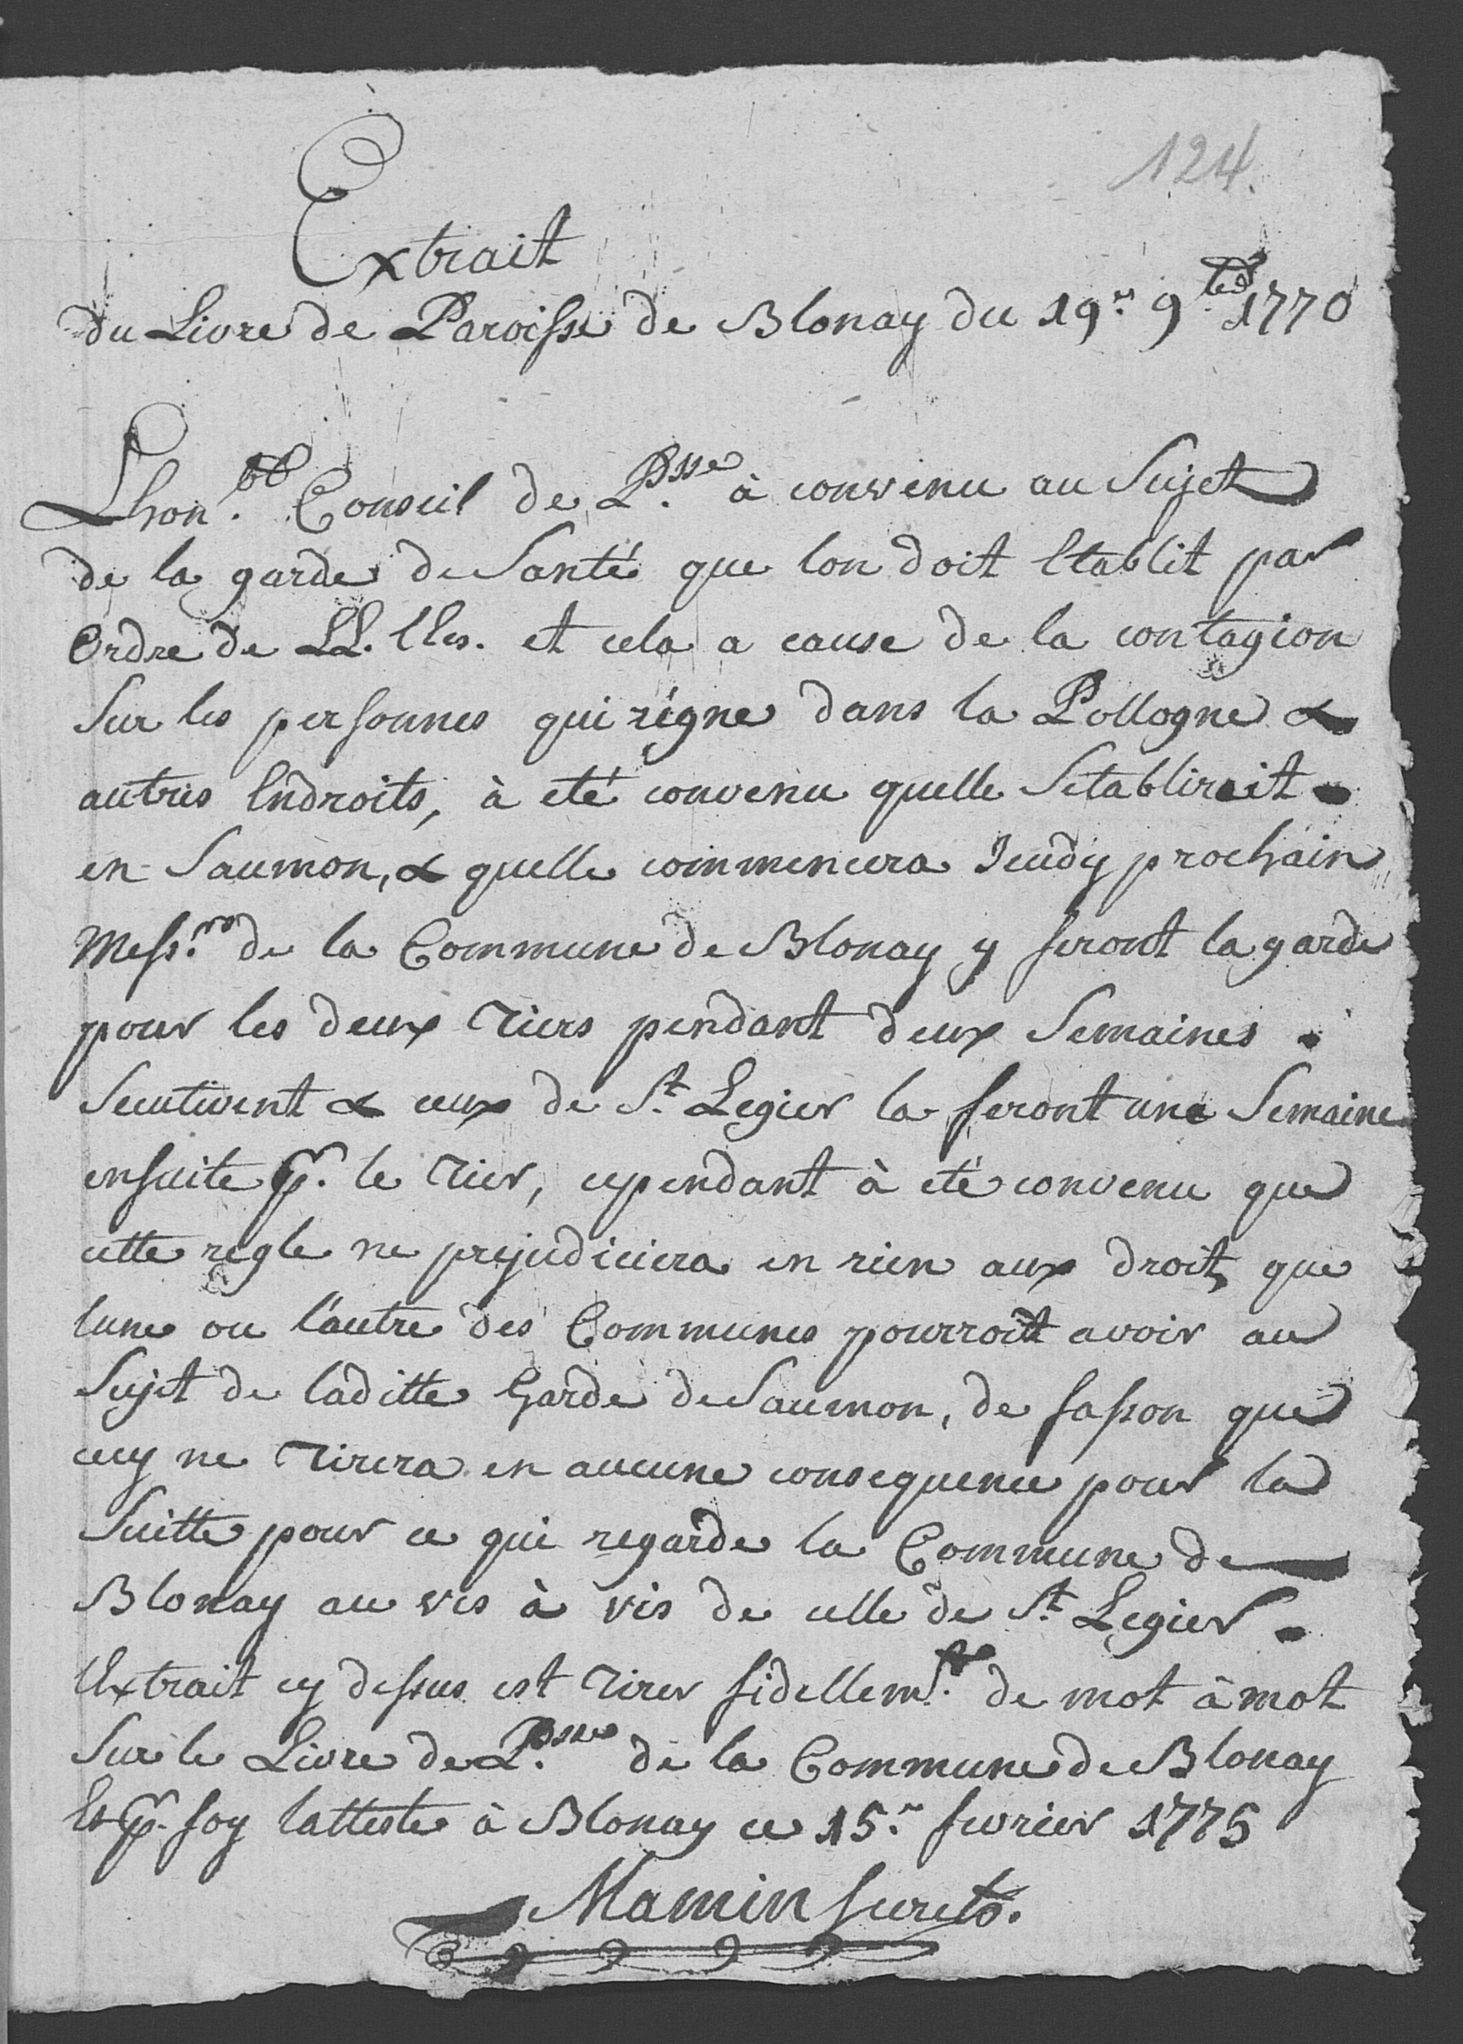 124.
Extrait
du Livre de Paroisse de Blonay du 19.e 9.bre 1770
Lhon.ble Conseil de P.sse à convenu au Sujet
de la garde de Santé que lon doit Etablit par
Ordre de LL. EEs. et cela a cause de la contagion
Sur les personnes qui régne dans la Pollogne &
autres Endroits, à eté convenu quelle Setablirait
en Saumon, & quelle commencera Jeudy prochain
Mess.rs de la Commune de Blonay y feront la garde
pour les deux Tiers pendant deux Semaines
Secutivent & ceux de St. Legier la feront une Semaine
ensuite pr. le Tier, cependant à eté convenu que
cette regle ne prejudiciera en rien aux droit, que
lune ou l'autre des Communes pourroit avoir au
Sujet de laditte Garde de Saumon, de fasson que
cecy ne Tirera en aucune consequence pour la
Suitte pour ce qui regarde la Commune de
Blonay au vis à vis de celle de St. Legier.
L'Extrait cy dessus est Tirer fidellem.t de mot à mot
Sur le Livre de P.sse de la Commune de Blonay
Et pr. foy latteste à Blonay ce 15.e fevrier 1775
Mamin Secret.